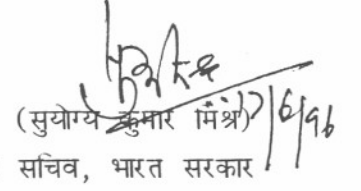 (सुयोग्ये कुमार मिश्र)
17/6/96
सचिव, भारत सरकार